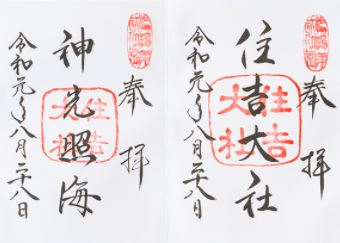 奉拝
神光照海
住吉大社
令和元年八月二十八日
奉拝
住吉大社
住吉大社
令和元年八月二十八日